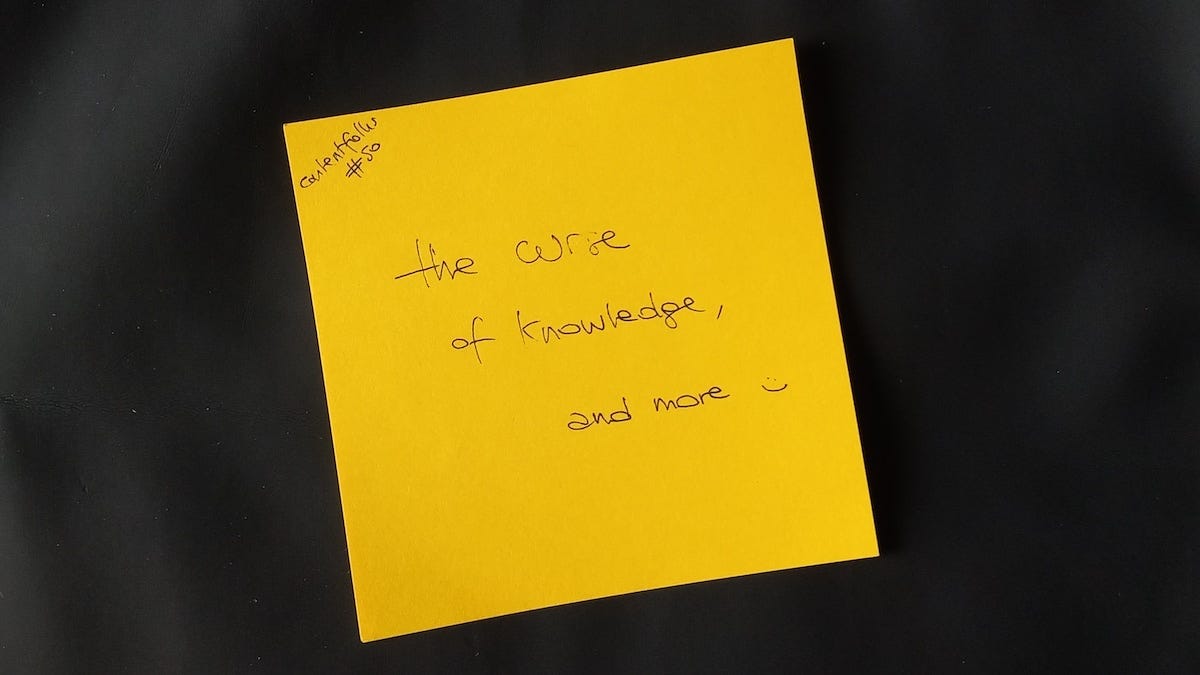 contentfolks
#50
the curse
of knowledge,
and more :)